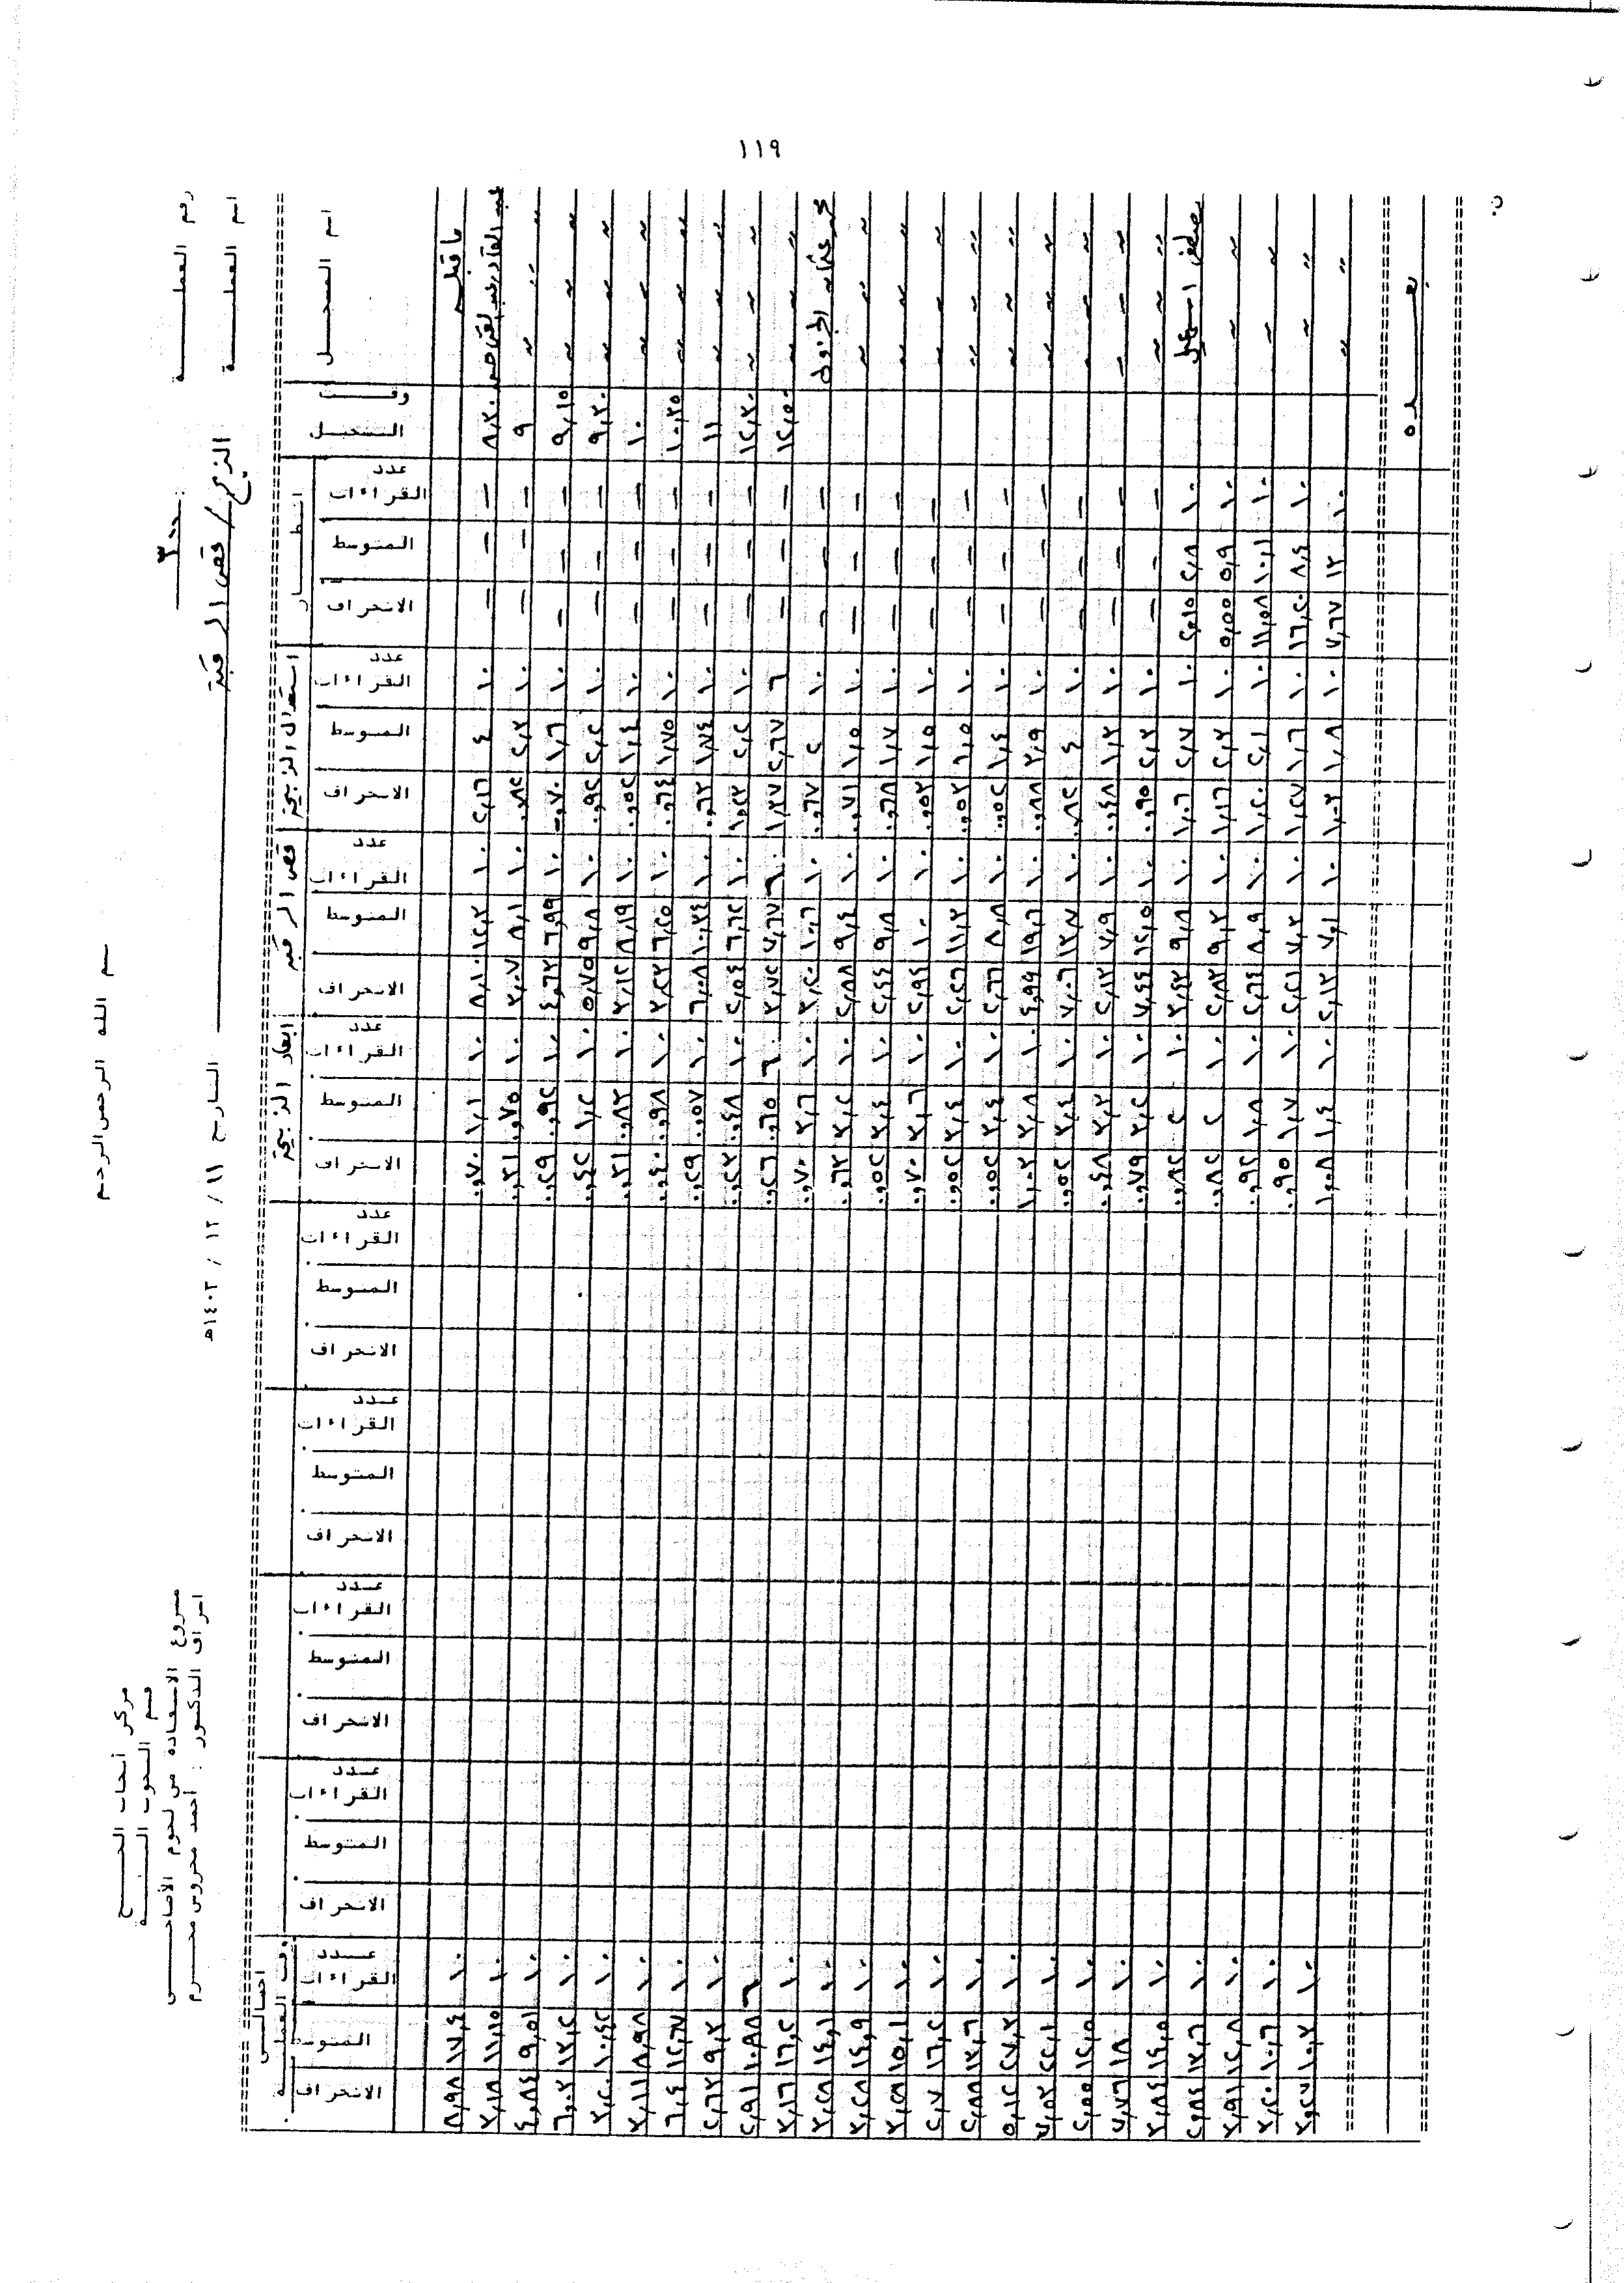 ١١٩
بسم الله الرحمن الرحيم
مركز أبحاث الحج
قسم البحوث البيئية
مشروع الاستفادة من لحوم الأضاحي
اشراف الدكتور : أحمد محروس محرم
رقم العملية : ٣٠٠
اسم العملية الذبح / قص الرقبة التاريخ ١١ / ١٢ / ١٤٠٣هـ
اسم المسجل وقت التسجيل انتظار استبدال الذبيحة قص الرقبة ابعاد الذبيحة احصائي وقت العملية
عدد القراءات المتوسط الانحراف عدد القراءات المتوسط الانحراف عدد القراءات المتوسط الانحراف عدد القراءات المتوسط الانحراف عدد القراءات المتوسط الانحراف عدد القراءات المتوسط الانحراف عدد القراءات المتوسط الانحراف عدد القراءات المتوسط الانحراف عدد القراءات المتوسط الانحراف
ما قبله
عبد القادر ٨,٣٠ – – – ١٠ ٤ ٢,١٦ ١٠ ١٢,٣ ٨,١٠ ١٠ ١,١ ٠,٧٠ ١٠ ١٧,٤ ٨,٩٨
〃 〃 〃 ٩ – – – ١٠ ٢,٣ ٠,٨٢ ١٠ ٨,١ ٣,٠٧ ١٠ ٠,٧٥ ٠,٣١ ١٠ ١١,١٥ ٣,١٨
〃 〃 〃 ٩,١٥ – – – ١٠ ١,٦ ٠,٧٠ ١٠ ٦,٩٩ ٤,٦٣ ١٠ ٠,٩٢ ٠,٢٩ ١٠ ٩,٥١ ٤,٨٤
〃 〃 〃 ٩,٣٠ – – – ١٠ ٢,٢ ٠,٩٢ ١٠ ٩,٨ ٥,٧٥ ١٠ ١,٢ ٠,٤٢ ١٠ ١٣,٢ ٦,٠٢
〃 〃 〃 ١٠ – – – ١٠ ١,٤ ٠,٥٢ ١٠ ٨,١٩ ٣,١٢ ١٠ ٠,٨٣ ٠,٣١ ١٠ ١٠,٤٢ ٣,٢٠
〃 〃 〃 ١٠,٢٥ – – – ١٠ ١,٧٥ ٠,٦٤ ١٠ ٦,٢٥ ٣,٢٣ ١٠ ٠,٩٨ ٠,٤٠ ١٠ ٨,٩٨ ٣,١١
〃 〃 〃 ١١ – – – ١٠ ١,٧٤ ٠,٦٣ ١٠ ١٠,٣٤ ٦,٠٨ ١٠ ٠,٥٧ ٠,٢٩ ١٠ ١٢,٦٧ ٦,٤
〃 〃 〃 ١٢,٣٠ – – – ١٠ ٢,٢ ١,٢٣ ١٠ ٦,٦٢ ٢,٥٤ ١٠ ٠,٤٨ ٠,٢٣ ١٠ ٩,٣ ٢,٦٣
〃 〃 〃 ١٢,٥٠ – – – ٦ ٢,٦٧ ١,٣٧ ٦ ٧,٦٧ ٢,٧٢ ٦ ٠,٦٥ ٠,٢٦ ٦ ١٠,٩٨ ٢,٩١
محمد عثمان – – – ١٠ ٢ ٠,٦٧ ١٠ ١٠,٦ ٣,٢٠ ١٠ ٣,٦ ٠,٧٠ ١٠ ١٦,٢ ٣,١٦
〃 〃 〃 – – – ١٠ ١,٥ ٠,٧١ ١٠ ٩,٤ ٢,٨٨ ١٠ ٣,٢ ٠,٦٣ ١٠ ١٤,١ ٣,٢٨
〃 〃 〃 – – – ١٠ ١,٧ ٠,٦٨ ١٠ ٩,٨ ٢,٤٤ ١٠ ٣,٤ ٠,٥٢ ١٠ ١٤,٩ ٣,٢٨
〃 〃 〃 – – – ١٠ ١,٥ ٠,٥٣ ١٠ ١٠ ٢,٩٤ ١٠ ٣,٦ ٠,٧٠ ١٠ ١٥,١ ٣,٥٩
〃 〃 〃 – – – ١٠ ١,٥ ٠,٥٣ ١٠ ١١,٢ ٢,٢٦ ١٠ ٣,٤ ٠,٥٢ ١٠ ١٦,٢ ٢,٧
〃 〃 〃 – – – ١٠ ١,٤ ٠,٥٢ ١٠ ٨,٨ ٢,٦٦ ١٠ ٣,٤ ٠,٥٢ ١٠ ١٣,٦ ٢,٨٨
〃 〃 〃 – – – ١٠ ٣,٩ ٠,٨٨ ١٠ ١٩,٦ ٤,٩٩ ١٠ ٣,٨ ١,٠٣ ١٠ ٢٧,٣ ٥,١٢
〃 〃 〃 – – – ١٠ ٤ ٠,٨٢ ١٠ ١٣,٧ ٧,٠٦ ١٠ ٣,٤ ٠,٥٢ ١٠ ٢٢,١ ٧,٥٣
〃 〃 〃 – – – ١٠ ١,٣ ٠,٤٨ ١٠ ٧,٩ ٢,١٣ ١٠ ٣,٣ ٠,٤٨ ١٠ ١٢,٥ ٢,٥٥
〃 〃 〃 – – – ١٠ ٢,٣ ٠,٩٥ ١٠ ١٢,٥ ٧,٤٤ ١٠ ٣,٢ ٠,٧٩ ١٠ ١٨ ٧,٧٦
مصطفى اسماعيل ١٠ ٢,٨ ٢,١٥ ١٠ ٢,٧ ١,٠٦ ١٠ ٩,٨ ٣,٤٣ ١٠ ٢ ٠,٨٢ ١٠ ١٤,٥ ٣,٨٤
〃 〃 ١٠ ٥,٩ ٥,٥٥ ١٠ ٢,٣ ١,١٦ ١٠ ٩,٣ ٢,٨٣ ١٠ ٢ ٠,٨٢ ١٠ ١٣,٦ ٢,٨٤
〃 〃 ١٠ ١٠,١ ١١,٥٨ ١٠ ٢,١ ١,٢٠ ١٠ ٨,٩ ٢,٦٤ ١٠ ١,٨ ٠,٩٢ ١٠ ١٢,٨ ٢,٩١
〃 〃 ١٠ ٨,٤ ١٦,٢٠ ١٠ ١,٦ ١,٢٧ ١٠ ٧,٣ ٢,٢١ ١٠ ١,٧ ٠,٩٥ ١٠ ١٠,٦ ٣,٢٠
〃 〃 ١٠ ١٢ ٧,٦٧ ١٠ ١,٨ ١,٠٣ ١٠ ٧,١ ٢,١٣ ١٠ ١,٤ ١,٠٨ ١٠ ١٠,٣ ٣,٢٧
بعده
ن.